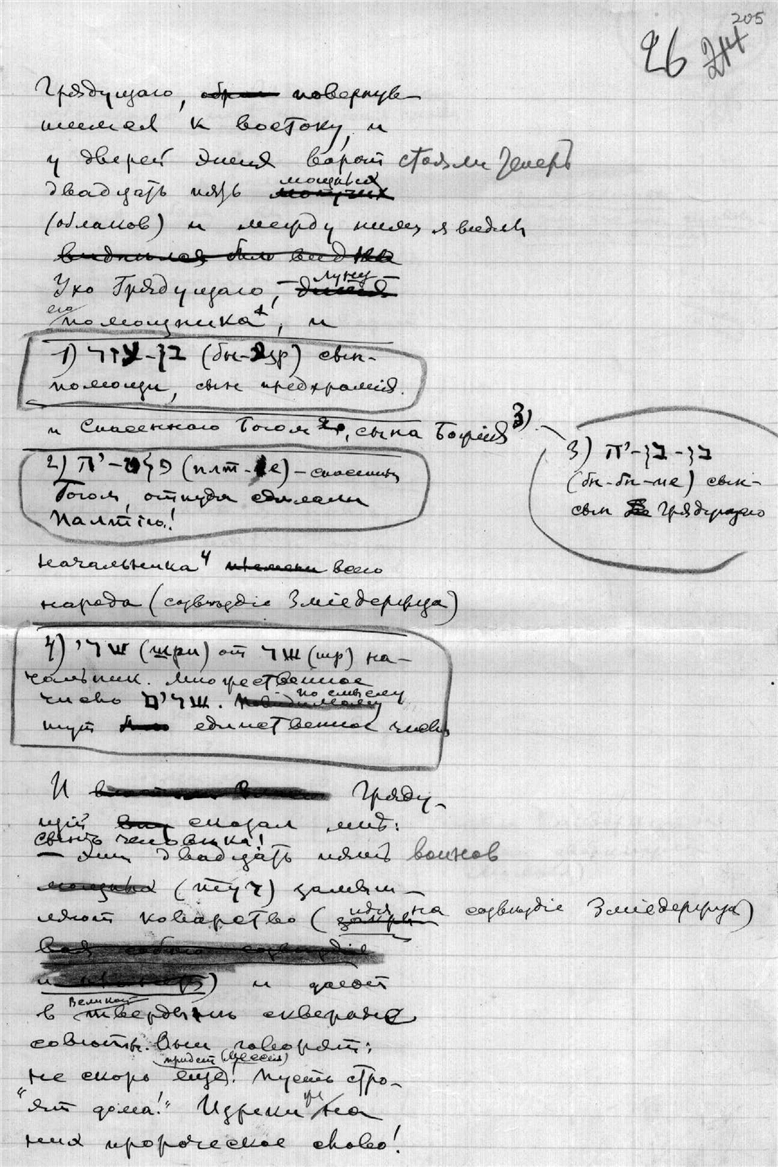 205
26 214
Грядущаго, повернув-
шимся к востоку, и
у дверей дома ворот стояли теперь
двадцать пять мощных
(облаков) и между ними я видел
Ухо Грядущаго, луну
его помощника, и
1) בן-עזר (бн-эзр) сын-
помощи, сын предхрамия.
и Спасеннаго Богом 2), сына Божия 3)
2) פלט-יה (плт-е) — спасенный
Богом, откуда сделали
Палтию!
3) בן-בן-יה
(бн-бн-ие) сын-
сын Грядущаго
начальника 4 всего
народа (созвездие Змиедержца)
4) שרי (шри) от שר (шр) на-
чальник. Множественное
число שרים. по смыслу
тут единственное число
И Гряду-
щий сказал мне:
сын человека!
— эти двадцать пять воинов
(туч) замыш-
ляют коварство (идя на созвездие Змиедержца)
) и дают
в Великой твердыне скверные
советы. Они говорят:
придет (Мессия)
не скоро еще! Пусть стро-
"ят дома!" Изреки же на
них пророческое слово!